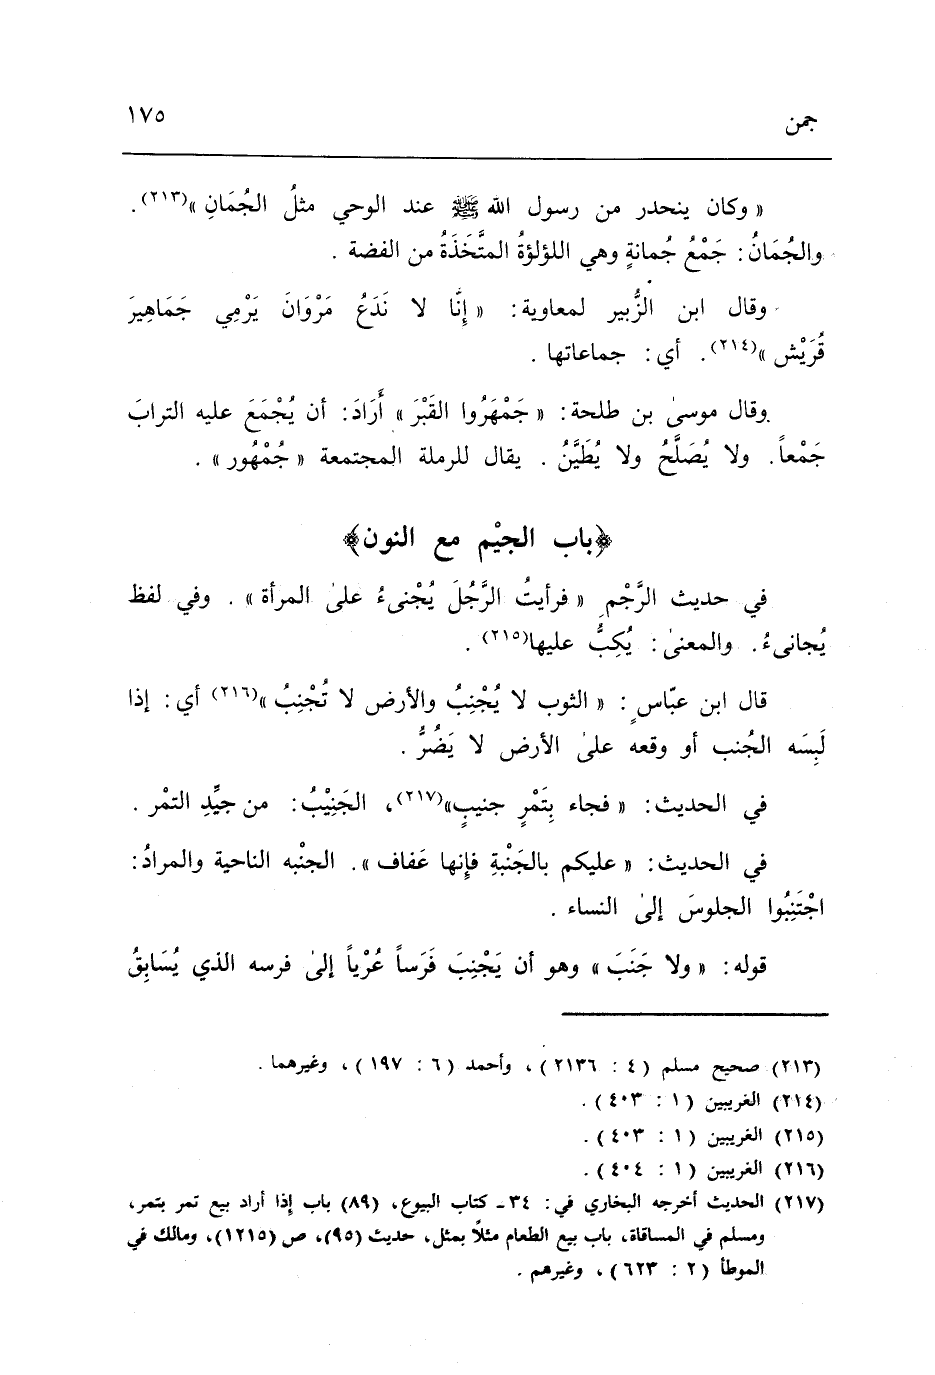 جمن ١٧٥
« وكان ينحدر من رسول الله ﷺ عند الوحي مثلُ الجُمَانِ »(٢١٣).
والجُمَانُ: جَمْعُ جُمانةٍ وهي اللؤلؤةُ المتَّخَذَةُ من الفضة .
وقال ابن الزُّبير لمعاوية: « إِنَّا لا نَدَعُ مَرْوَانَ يَرْمِي جَمَاهِيرَ
قُرَيْش »(٢١٤). أي: جماعاتها .
وقال موسىٰ بن طلحة: « جَمْهَرُوا القَبْرَ » أَرَادَ: أن يُجْمَعَ عليه الترابَ
جَمْعاً. ولا يُصَلَّحُ ولا يُطَيَّنُ . يقال للرملة المجتمعة « جُمْهُور » .
﴿باب الجيْم مع النون﴾
في حديث الرَّجْمِ « فرأيتُ الرَّجُلَ يُجْنىءُ علىٰ المرأة » . وفي لفظ
يُجانىءُ. والمعنىٰ: يُكِبُّ عليها(٢١٥) .
قال ابن عبّاسٍ: « الثوب لا يُجْنِبُ والأرض لا تُجْنِبُ »(٢١٦) أي: إذا
لَبِسَه الجُنب أو وقعه علىٰ الأرض لا يَضُرُّ .
في الحديث: « فجاء بِتَمْرٍ جنيبٍ»(٢١٧)، الجَنِيْبُ: من جيِّدِ التمْر .
في الحديث: « عليكم بالجَنْبةِ فإِنها عَفاف ». الجنْبه الناحية والمرادُ:
اجْتَنِبُوا الجلوسَ إلىٰ النساء .
قوله: « ولا جَنَبَ » وهو أن يَجْنِبَ فَرَساً عُرْياً إلىٰ فرسه الذي يُسَابِقُ
(٢١٣) صحيح مسلم (٤ : ٢١٣٦)، وأحمد (٦ : ١٩٧)، وغيرهما .
(٢١٤) الغريبين (١ : ٤٠٣) .
(٢١٥) الغريبين (١ : ٤٠٣) .
(٢١٦) الغريبين (١ : ٤٠٤) .
(٢١٧) الحديث أخرجه البخاري في: ٣٤ ـ كتاب البيوع، (٨٩) باب إِذا أراد بيع تمر بتمر،
ومسلم في المساقاة، باب بيع الطعام مثلاً بمثل، حديث (٩٥)، ص (١٢١٥)، ومالك في
الموطأ (٢ : ٦٢٣)، وغيرهم .